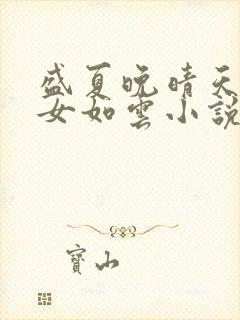 盛夏晚晴天
女如雲小說
寶山